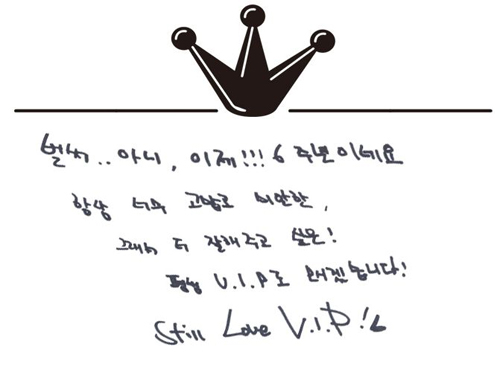 벌써.. 아니, 이제!!! 6 주년이네요
항상 너무 고맙고 미안한,
그래서 더 잘해주고 싶은!
평생 V.I.P로 모시겠습니다!
Still Love V.I.P!